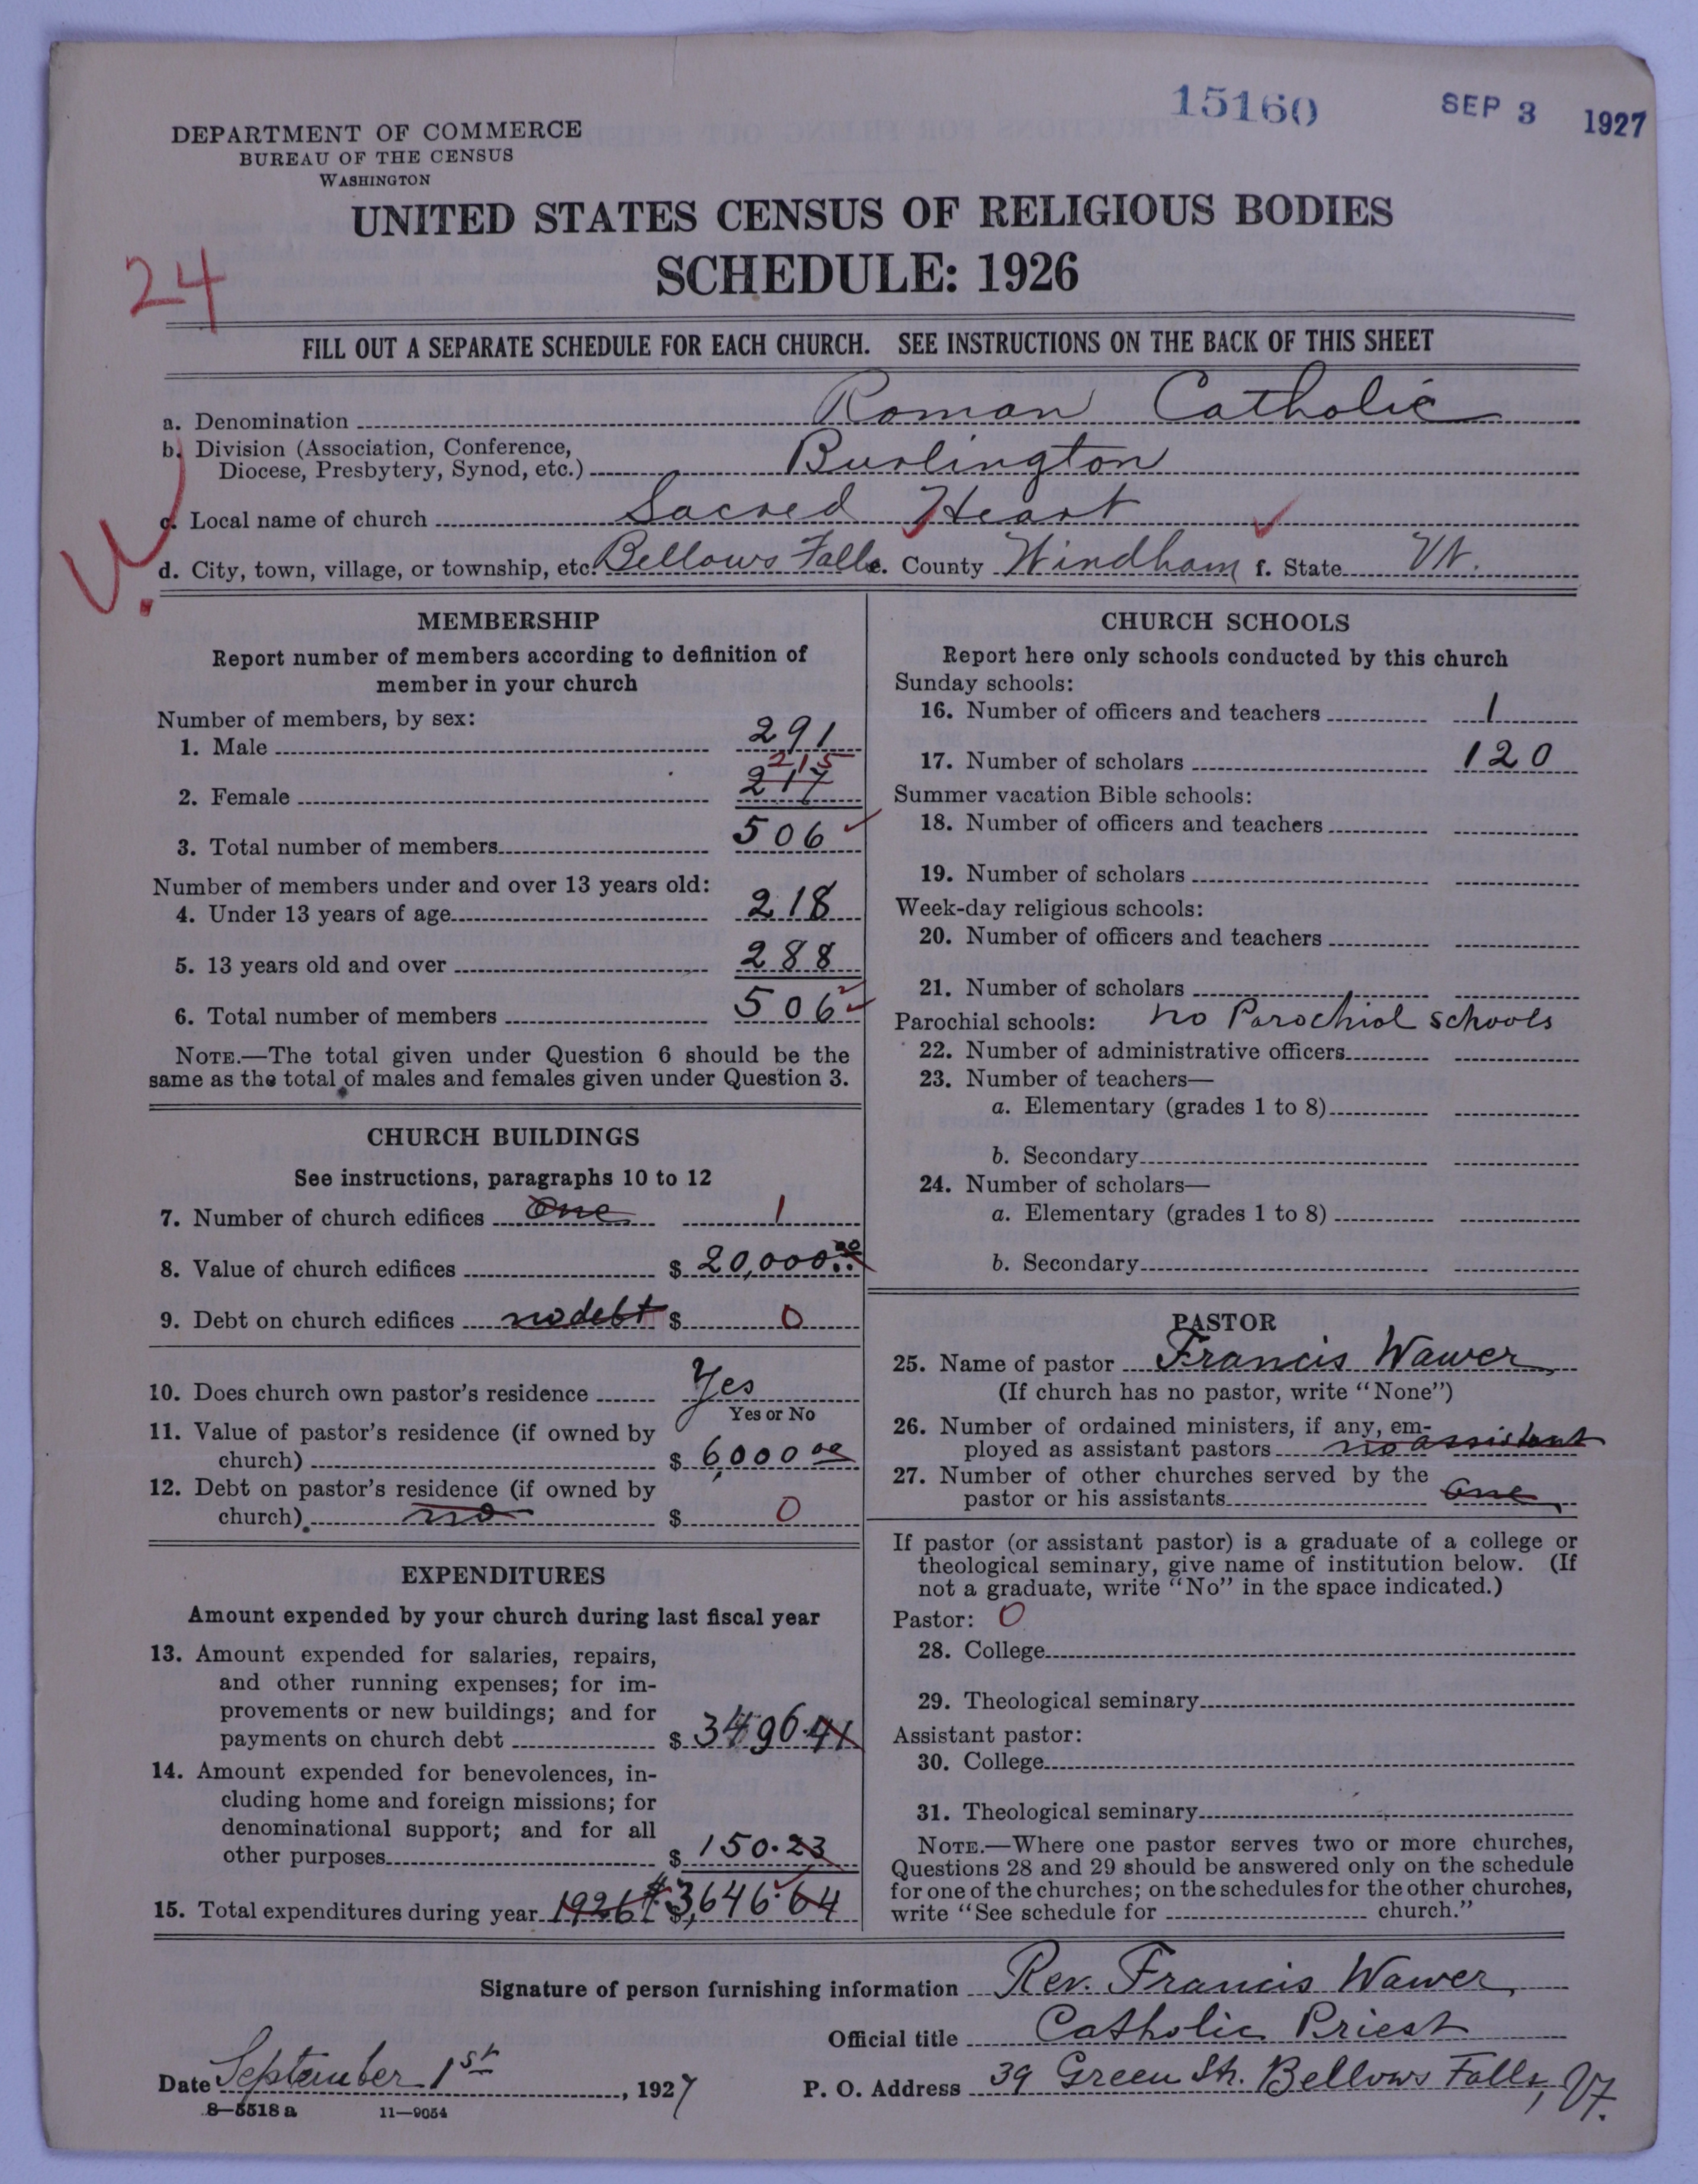 15160 SEP 3 1927
DEPARTMENT OF COMMERCE
BUREAU OF THE CENSUS
WASHINGTON
UNITED STATES CENSUS OF RELIGIOUS BODIES
SCHEDULE: 1926
24
FILL OUT A SEPARATE SCHEDULE FOR EACH CHURCH. SEE INSTRUCTIONS ON THE BACK OF THIS SHEET
a. Denomination Roman Catholic
b. Division (Association, Conference,
Diocese, Presbytery, Synod, etc.) Burlington
c. Local name of church Sacred Heart
d. City, town, village, or township, etc. Bellows Falls e. County Windham f. State Vt.
MEMBERSHIP
Report number of members according to definition of
member in your church
Number of members, by sex:
1. Male 291
215
2. Female 217
3. Total number of members 506
Number of members under and over 13 years old:
4. Under 13 years of age 218
5. 13 years old and over 288
6. Total number of members 506
NOTE.—The total given under Question 6 should be the
same as the total of males and females given under Question 3.
CHURCH BUILDINGS
See instructions, paragraphs 10 to 12
7. Number of church edifices One 1
8. Value of church edifices $ 20,000.00
9. Debt on church edifices no debt $ 0
10. Does church own pastor's residence Yes
Yes or No
11. Value of pastor's residence (if owned by
church) $ 6,000 00
12. Debt on pastor's residence (if owned by
church) no $ 0
EXPENDITURES
Amount expended by your church during last fiscal year
13. Amount expended for salaries, repairs,
and other running expenses; for im-
provements or new buildings; and for
payments on church debt $ 3496.41
14. Amount expended for benevolences, in-
cluding home and foreign missions; for
denominational support; and for all
other purposes $ 150.23
15. Total expenditures during year 1926 $ $ 3,646.64
CHURCH SCHOOLS
Report here only schools conducted by this church
Sunday schools:
16. Number of officers and teachers 1
17. Number of scholars 120
Summer vacation Bible schools:
18. Number of officers and teachers
19. Number of scholars
Week-day religious schools:
20. Number of officers and teachers
21. Number of scholars
Parochial schools: no Parochial schools
22. Number of administrative officers
23. Number of teachers—
a. Elementary (grades 1 to 8)
b. Secondary
24. Number of scholars—
a. Elementary (grades 1 to 8)
b. Secondary
PASTOR
25. Name of pastor Francis Wawer
(If church has no pastor, write "None")
26. Number of ordained ministers, if any, em-
ployed as assistant pastors no assistant
27. Number of other churches served by the
pastor or his assistants One
If pastor (or assistant pastor) is a graduate of a college or
theological seminary, give name of institution below. (If
not a graduate, write "No" in the space indicated.)
Pastor: 0
28. College
29. Theological seminary
Assistant pastor:
30. College
31. Theological seminary
NOTE.—Where one pastor serves two or more churches,
Questions 28 and 29 should be answered only on the schedule
for one of the churches; on the schedules for the other churches,
write "See schedule for church."
Signature of person furnishing information Rev. Francis Wawer
Official title Catholic Priest
Date September 1st, 1927 P. O. Address 39 Green St. Bellows Falls, Vt.
8—5518 a 11—9054